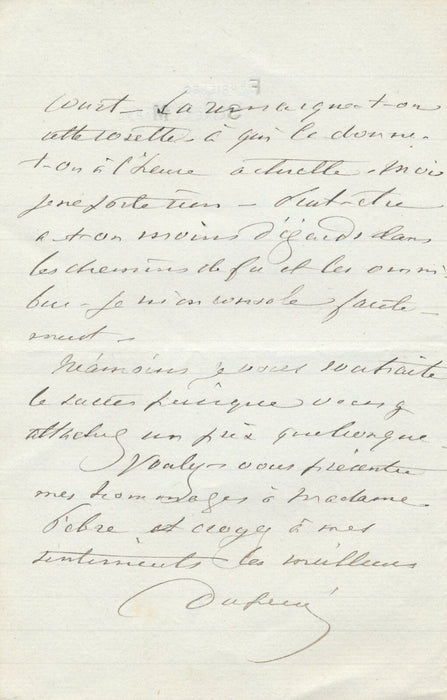 court - La remarque-t-on
cette rosette - à qui la donne-
t-on à l'heure actuelle - Moi
je ne porte rien - Peut-être
a-t-on moins d'égards dans
les chemins de fer et les omni
bus - Je m'en console facile-
ment -
Néanmoins je vous souhaite
le succès puisque vous y
attachez un prix quelconque -
Veuillez vous présenter
mes hommages à Madame
Febre et croyez à mes
sentiments les meilleurs